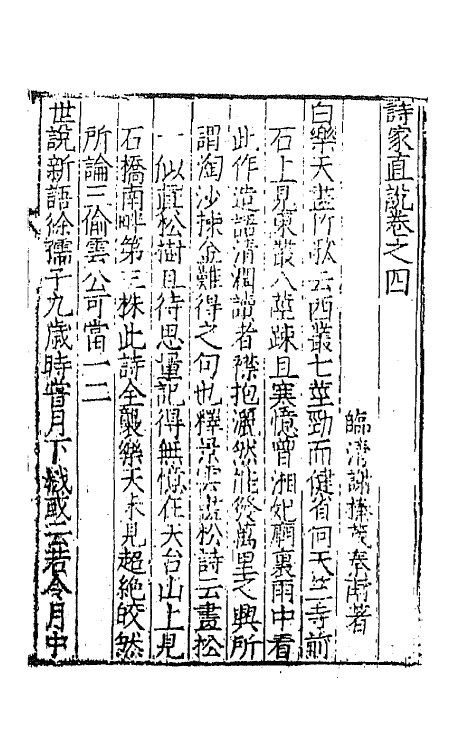 詩家直說卷之四
臨清謝榛茂秦甫著
白樂天畫竹歌云西叢七莖勁而健省向天竺寺前
石上見東叢八莖疎且寒憶曾湘妃廟裏雨中看
此作造語清潤讀者襟抱灑然能發萬里之興所
謂淘沙揀金難得之句也釋景雲畫松詩云畫松
一似真松樹且待思量記得無憶在天台山上見
石橋南畔第三株此詩全襲樂天未見超絶皎然
所論三偷雲公可當一二
世說新語徐孺子九歲時嘗月下戲或云若令月中